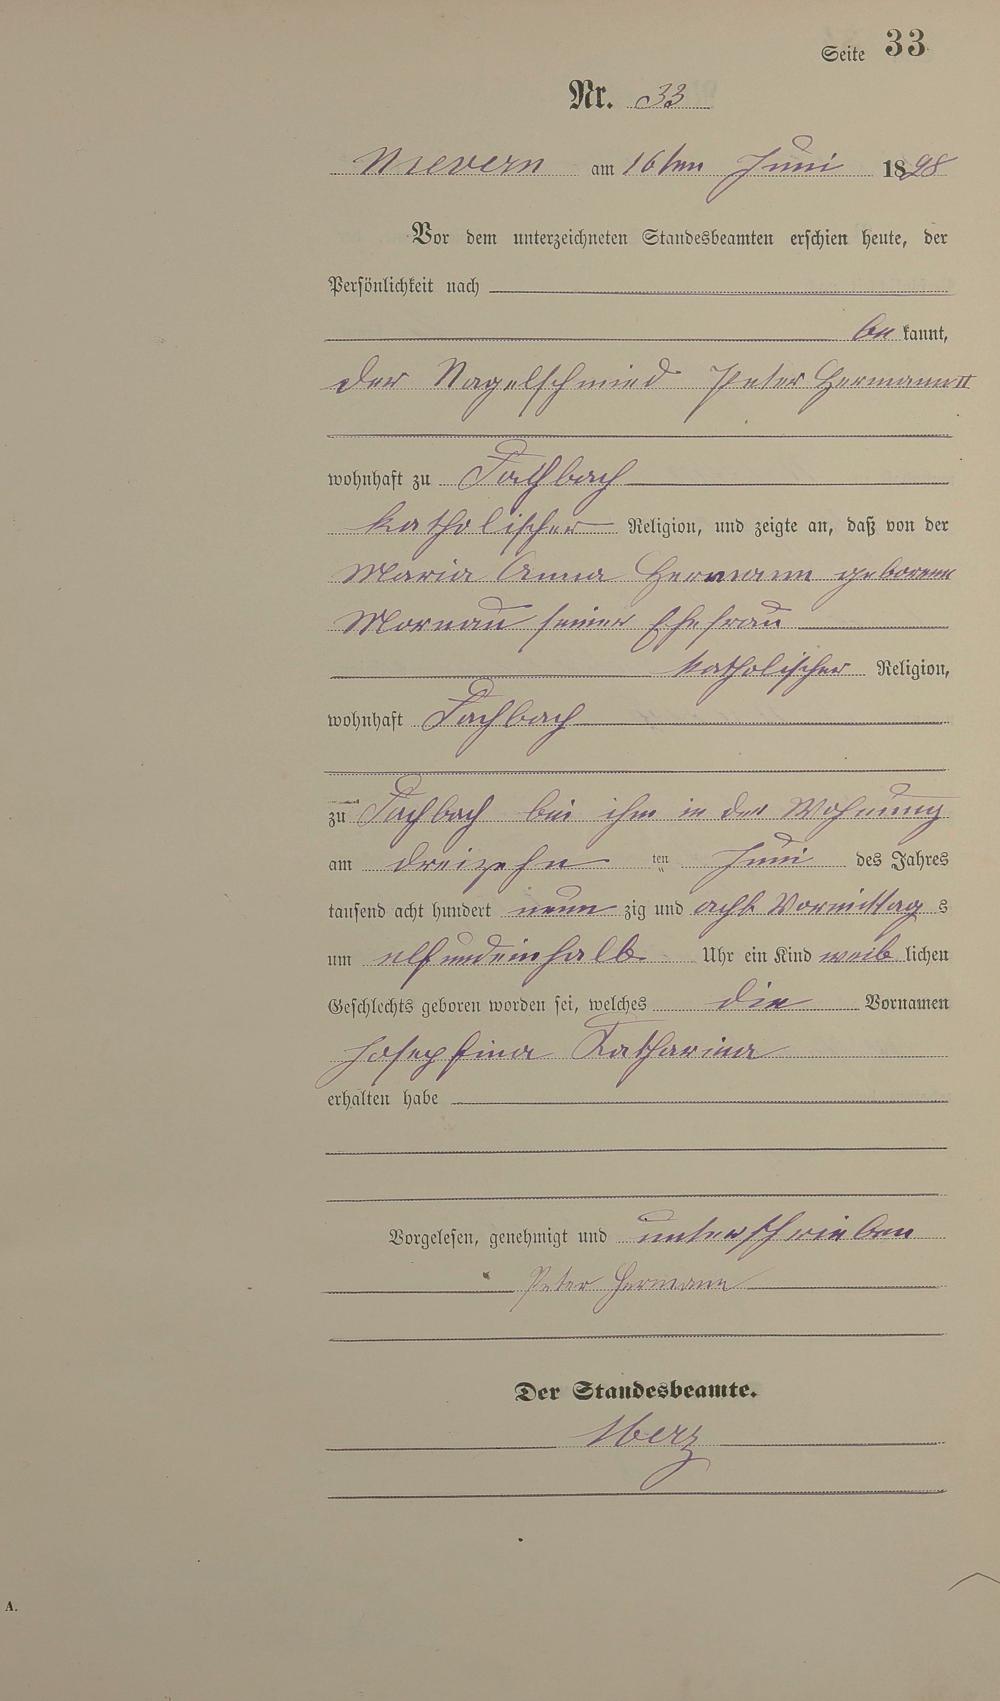 Seite 33
Nr. 33
Nievern am 16ten Juni 1898
Vor dem unterzeichneten Standesbeamten erschien heute, der
Persönlichkeit nach
be kannt,
der Nagelschmied Peter Hermann II
wohnhaft zu Fachbach
katholischer Religion, und zeigte an, daß von der
Maria Anna Hermann geborene
Mornau seiner Ehefrau
katholischer Religion,
wohnhaft Fachbach
zu Fachbach bei ihm in der Wohnung
am dreizehn ten Juni des Jahres
tausend acht hundert neun zig und acht Vormittag s
um elfundeinhalb Uhr ein Kind weib lichen
Geschlechts geboren worden sei, welches die Vornamen
Josephina Katharina
erhalten habe
Vorgelesen, genehmigt und unterschrieben
Peter Hermann
Der Standesbeamte.
A.